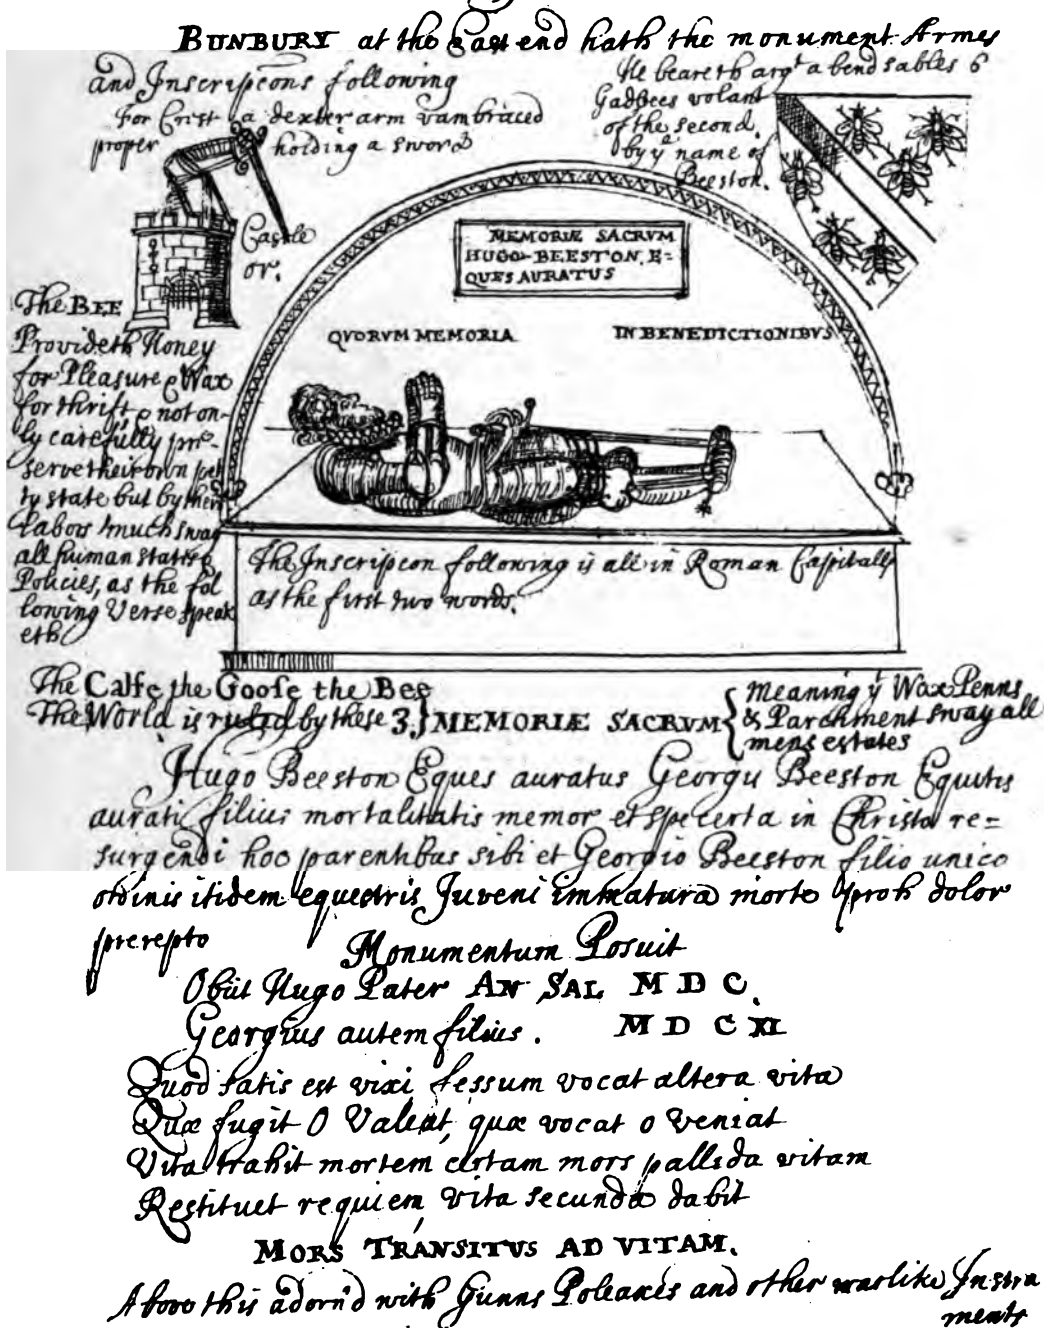 BUNBURY at the East end hath the monument Armes
and Inscripcons following
For Crest a dexter arm vambraced
proper holding a sword
Castle
or.
He beareth argt a bend sables 6
Gadbees volant
of the second.
by ye name of
Beeston.
MEMORIÆ SACRVM
HUGO BEESTON. E=
QUES AURATUS
QVORVM MEMORIA
IN BENEDICTIONIBVS
The BEE
Provideth Honey
for Pleasure & Wax
for thrift & not on-
ly carefully pre-
serve their own pet
ty state but by their
Labors much sway
all human states &
Policies, as the fol
lowing Verse speak
eth
The Inscripcon following is all in Roman Capitalls
as the first two words.
The Calfe the Goose the Bee
The World is ruled by these 3.} MEMORIÆ SACRVM {
meaning yt Wax Penns
& Parchment sway all
mens estates
Hugo Beeston Eques auratus Georgii Beeston Equitis
aurati filius mortalitatis memor et spe certa in Christo re=
surgendi hoc parentibus sibi et Georgio Beeston filio unico
ordinis itidem equestris Juveni immatura morte proh dolor
prerepto
Monumentum Posuit
Obiit Hugo Pater AN SAL M D C.
Georgius autem filius. M D C XI
Quod satis est vixi fessum vocat altera vita
Quæ fugit O Valeat, quæ vocat o veniat
Vita trahit mortem certam mors pallida vitam
Restituet requiem, vita secunda dabit
MORS TRANSITVS AD VITAM.
Above this adorn'd with Gunns Poleaxes and other warlike Instru
ments